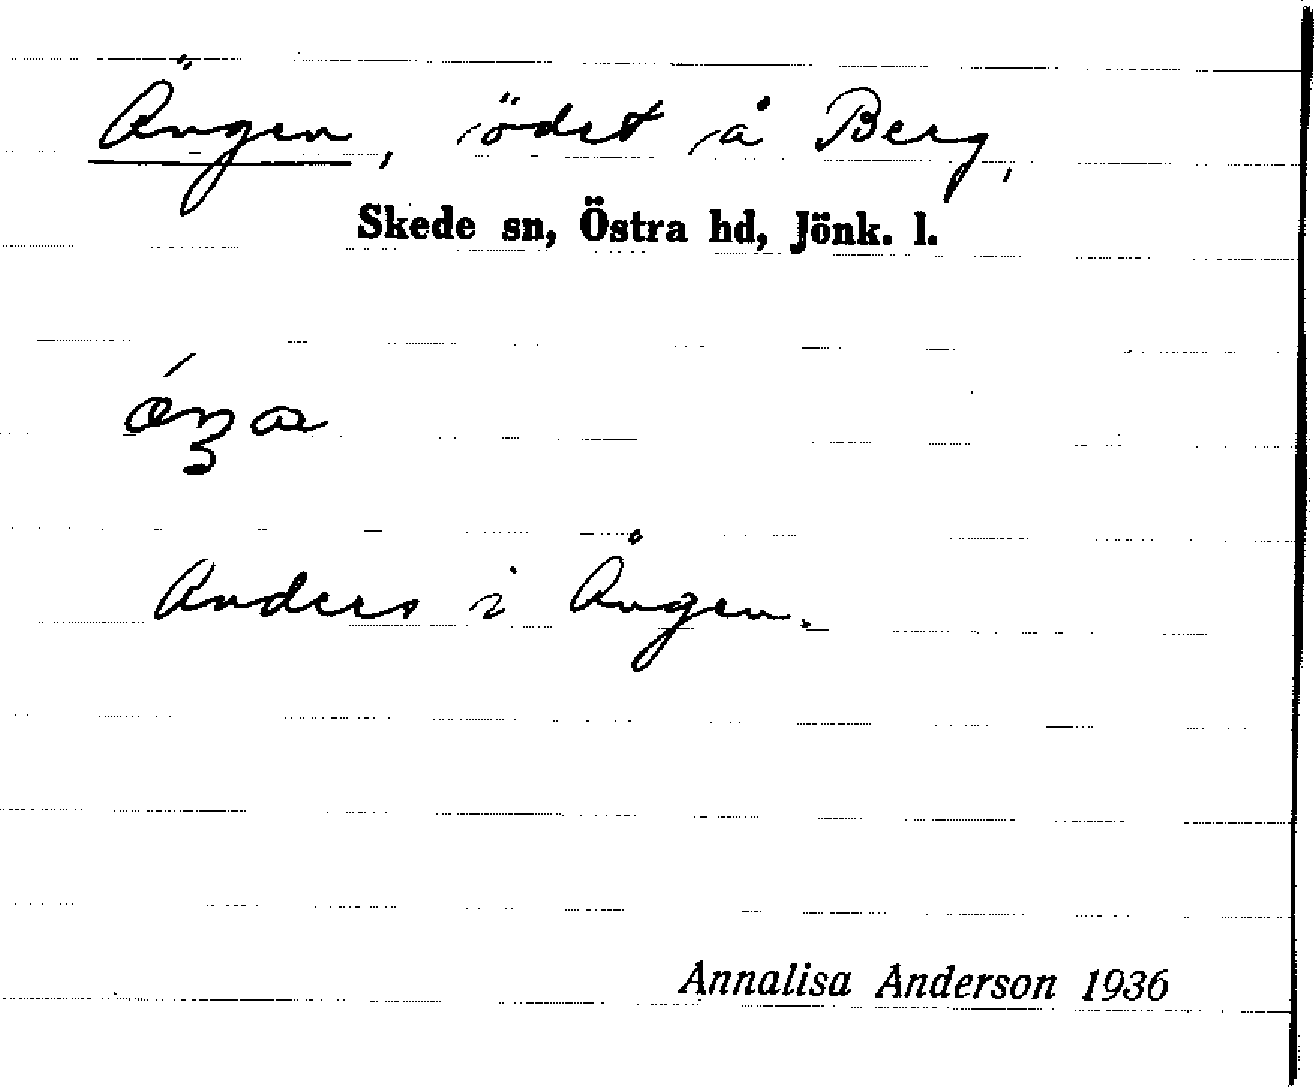 Ängen, ödet å Berg,
Skede sn, Östra hd, Jönk. l.
Anders i Ängen.
Annalisa Anderson 1936